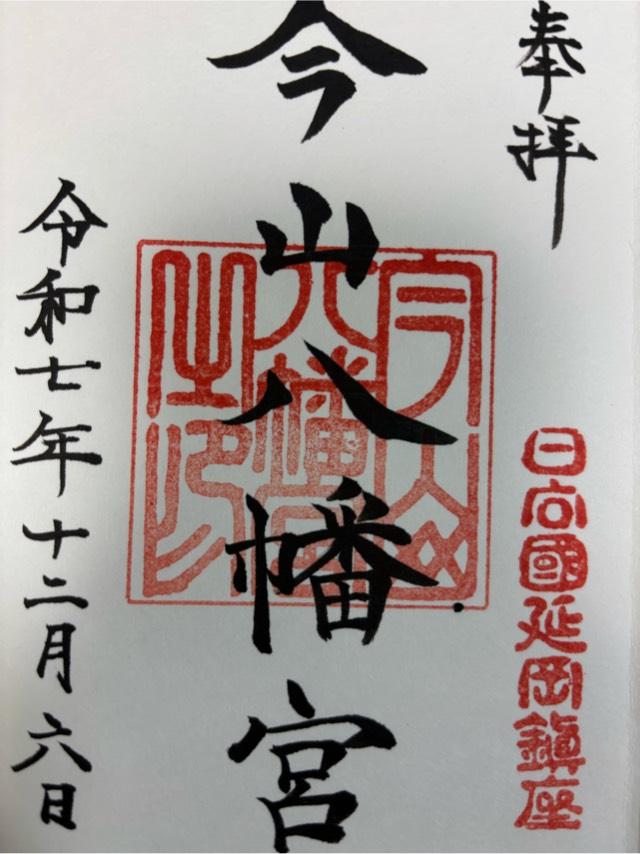 奉拝
日向國延岡鎮座
今山八幡宮
今山八幡宮之印
令和七年十二月六日